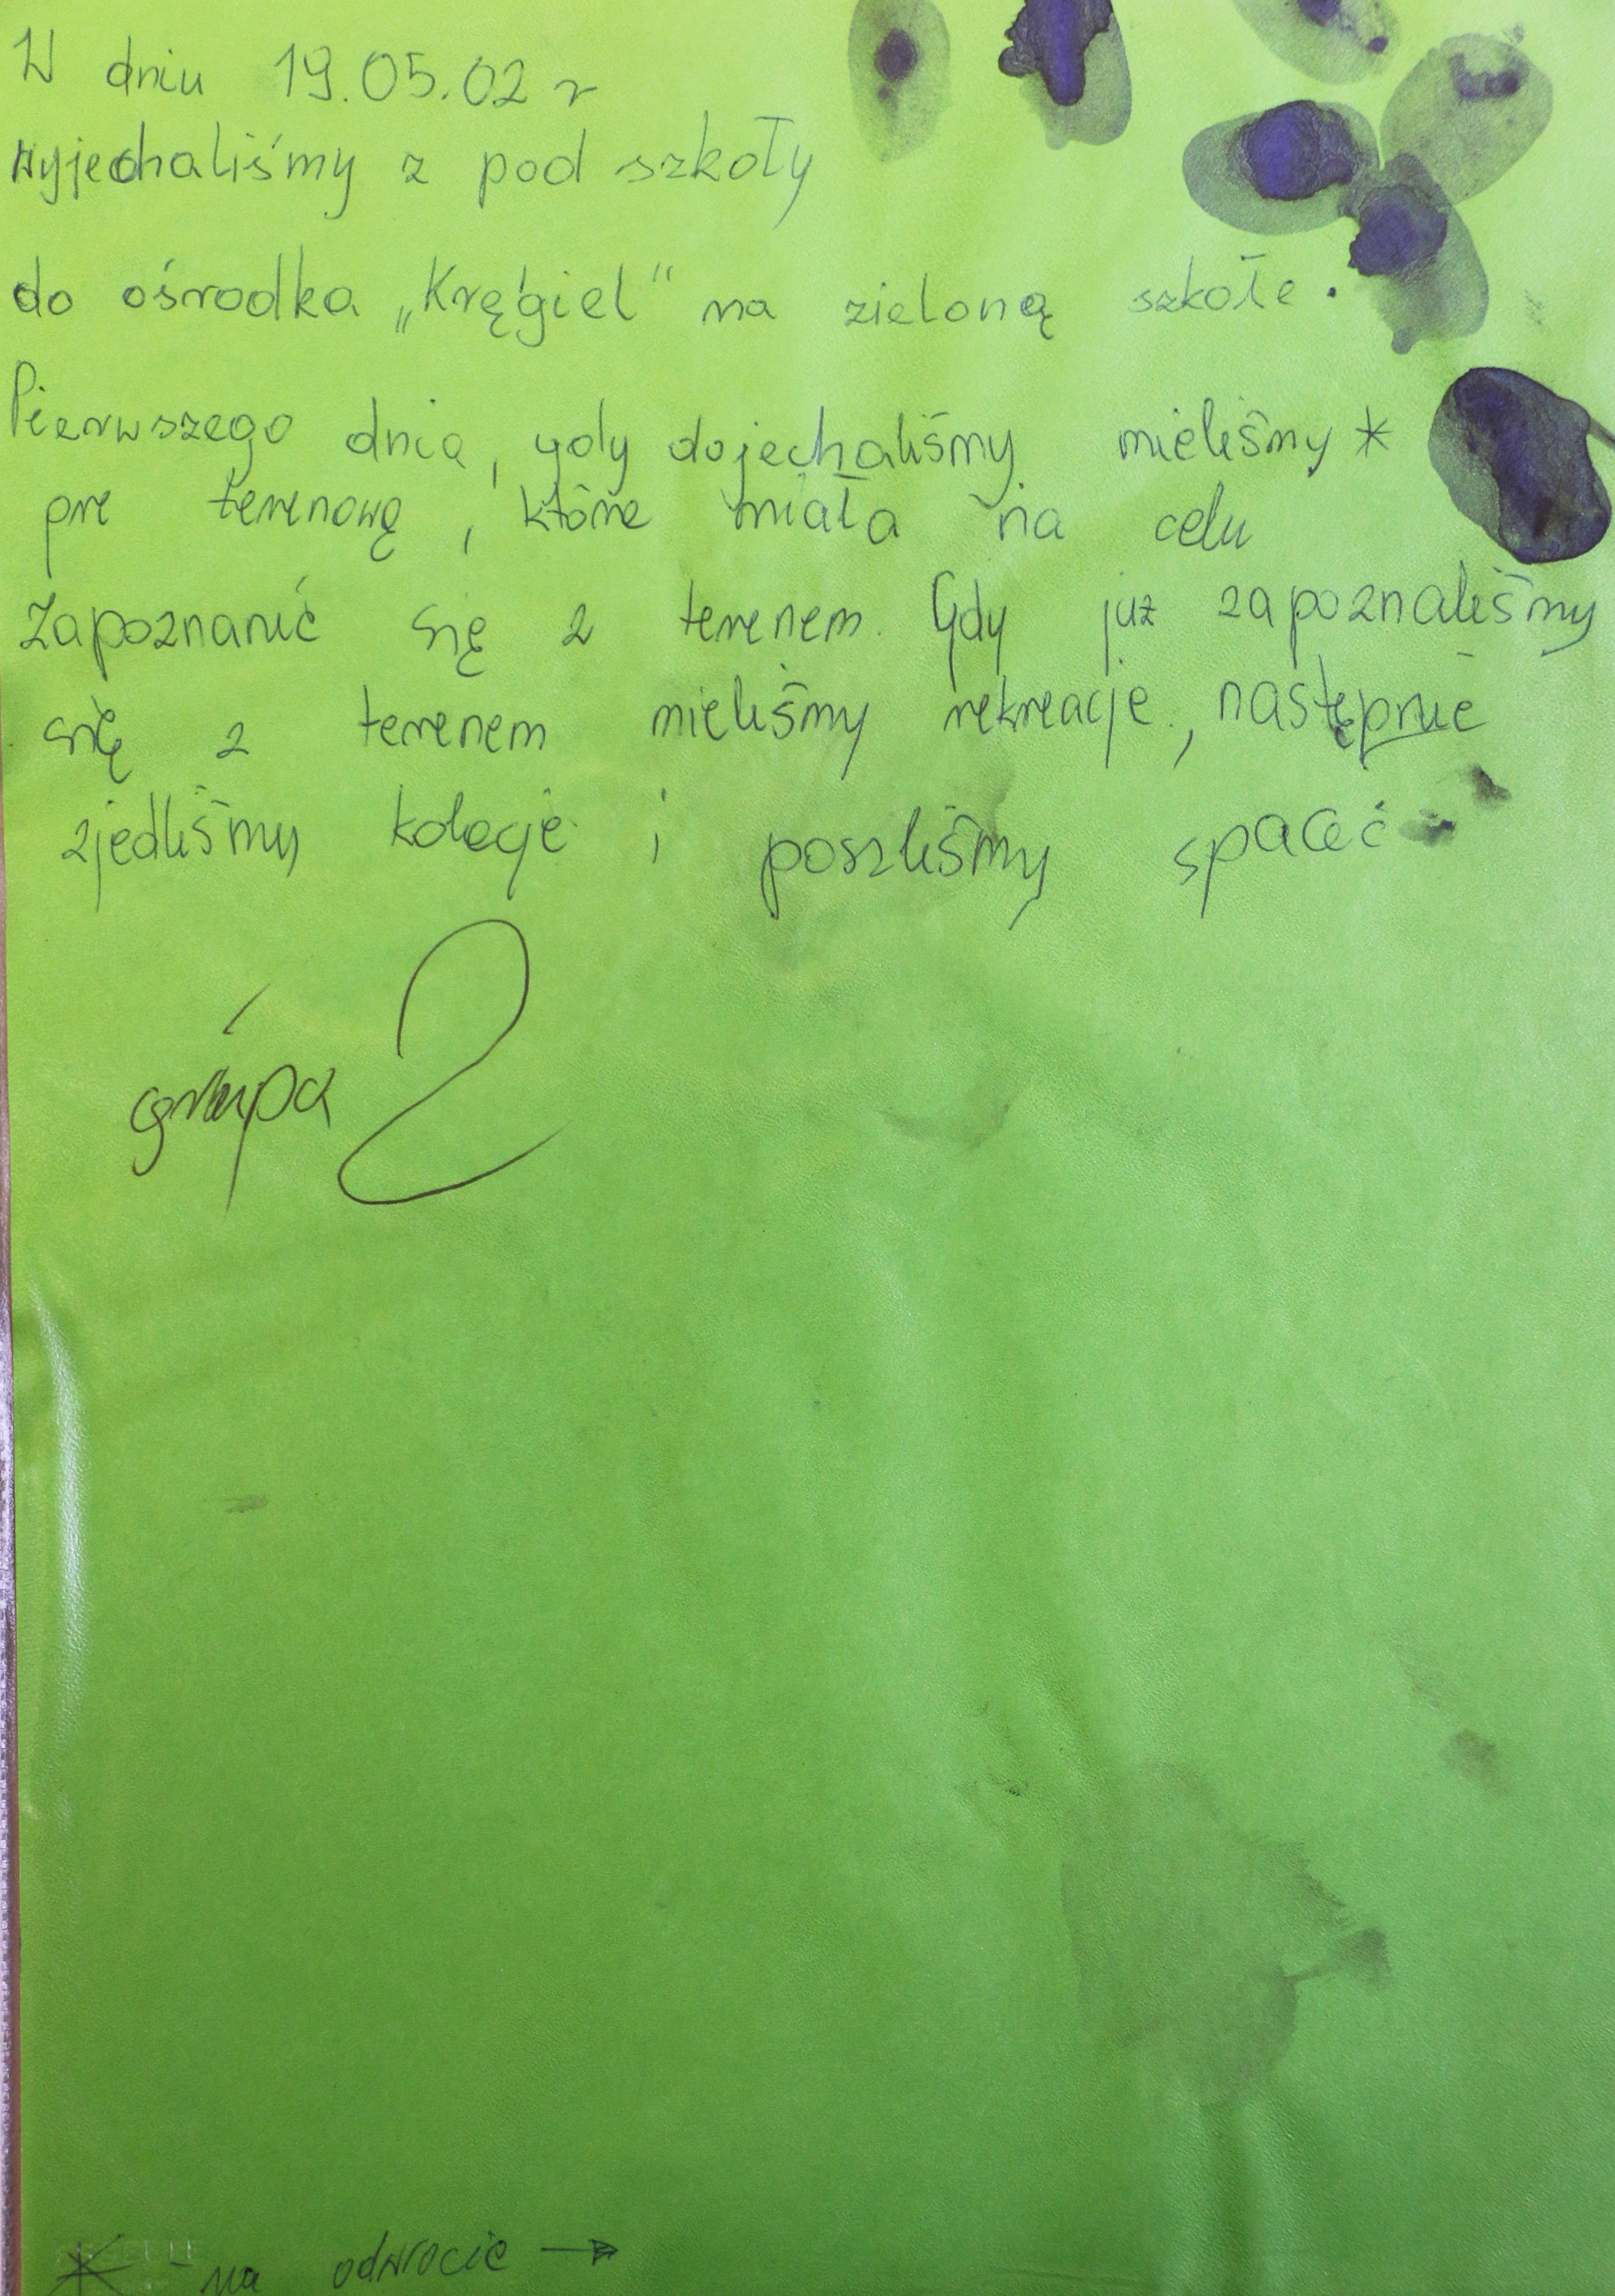 W dniu 19.05.02 r
wyjechaliśmy z pod szkoły
do ośrodka „Kręgiel" na zieloną szkołe.
Pierwszego dnia, gdy dojechaliśmy mieliśmy *
gre terenową, które miała na celu
Zapoznanić się z terenem. Gdy już zapoznaliśmy
się z terenem mieliśmy rekreacje, następnie
zjedliśmy kolacje i poszliśmy spać
grupa 2
* - na odwrocie →